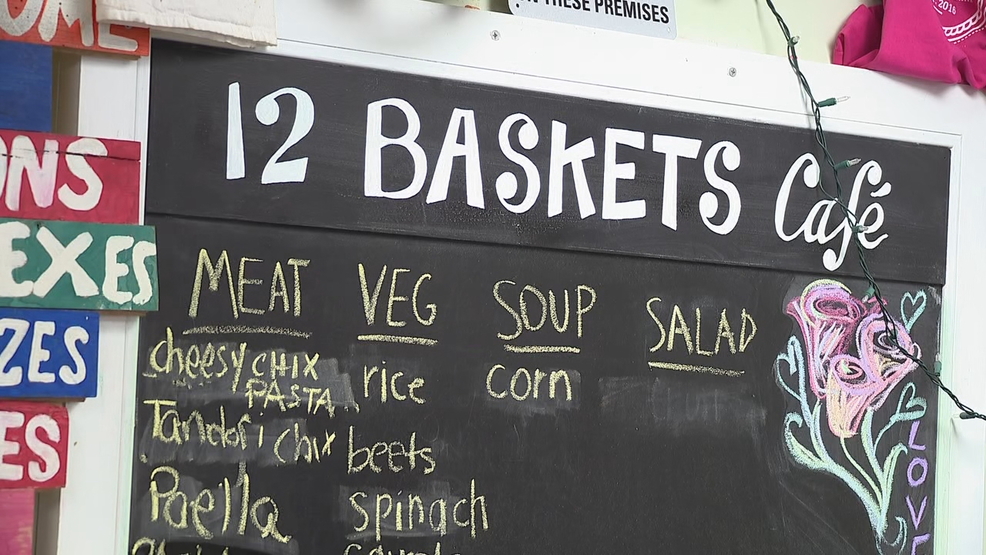 N THESE PREMISES
2016
OME
ONS
EXES
ZES
ES
12 BASKETS Café
MEAT VEG SOUP SALAD
cheesy CHIX PASTA rice corn
Tandori chix beets
Paella spinach
LOVE